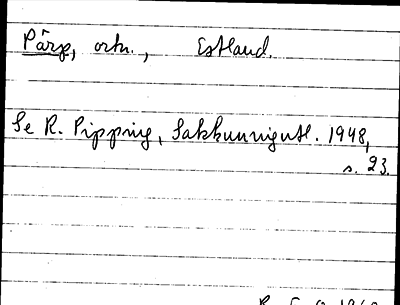 Pärg, ortn., Estland.
Se R. Pipping, Sakkunnigutl. 1948,
s. 23.